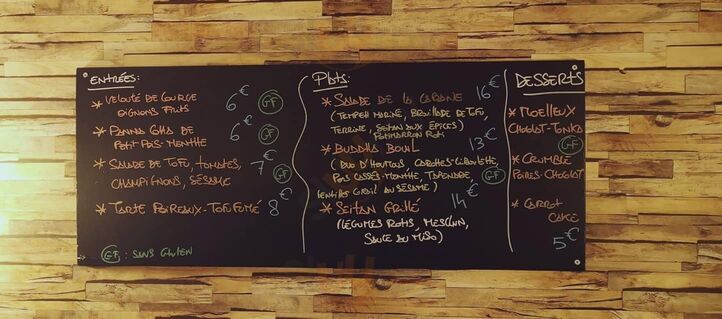 ENTRÉES:
* VELOUTÉ DE COURGE
OIGNONS FRITS
6€ GF
* PANNA COTTA DE
PETIT POIS-MENTHE
6€ GF
* SALADE DE TOFU, TOMATES,
CHAMPIGNONS, SÉSAME
7€ GF
* TARTE POIREAUX-TOFU FUMÉ 8€
GF : SANS GLUTEN
PLATS:
* SALADE DE LA CABANE 16€
(TEMPEH MARINÉ, BROUILLADE DE TOFU,
TERRINE, SEITAN AUX ÉPICES)
POTIMARRON ROTI
* BUDDHA BOWL 13€
(DUO D'HOUMOUS, CAROTTES-CIBOULETTE,
POIS CASSÉS-MENTHE, TAPENADE, GF
LENTILLES CORAIL AU SÉSAME)
* SEITAN GRILLÉ 14€
(LÉGUMES ROTIS, MESCLUN,
SAUCE AU MISO)
DESSERTS
* MOELLEUX
CHOCOLAT-TONKA
GF
* CRUMBLE
POIRES-CHOCOLAT
* CARROT
CAKE
5€